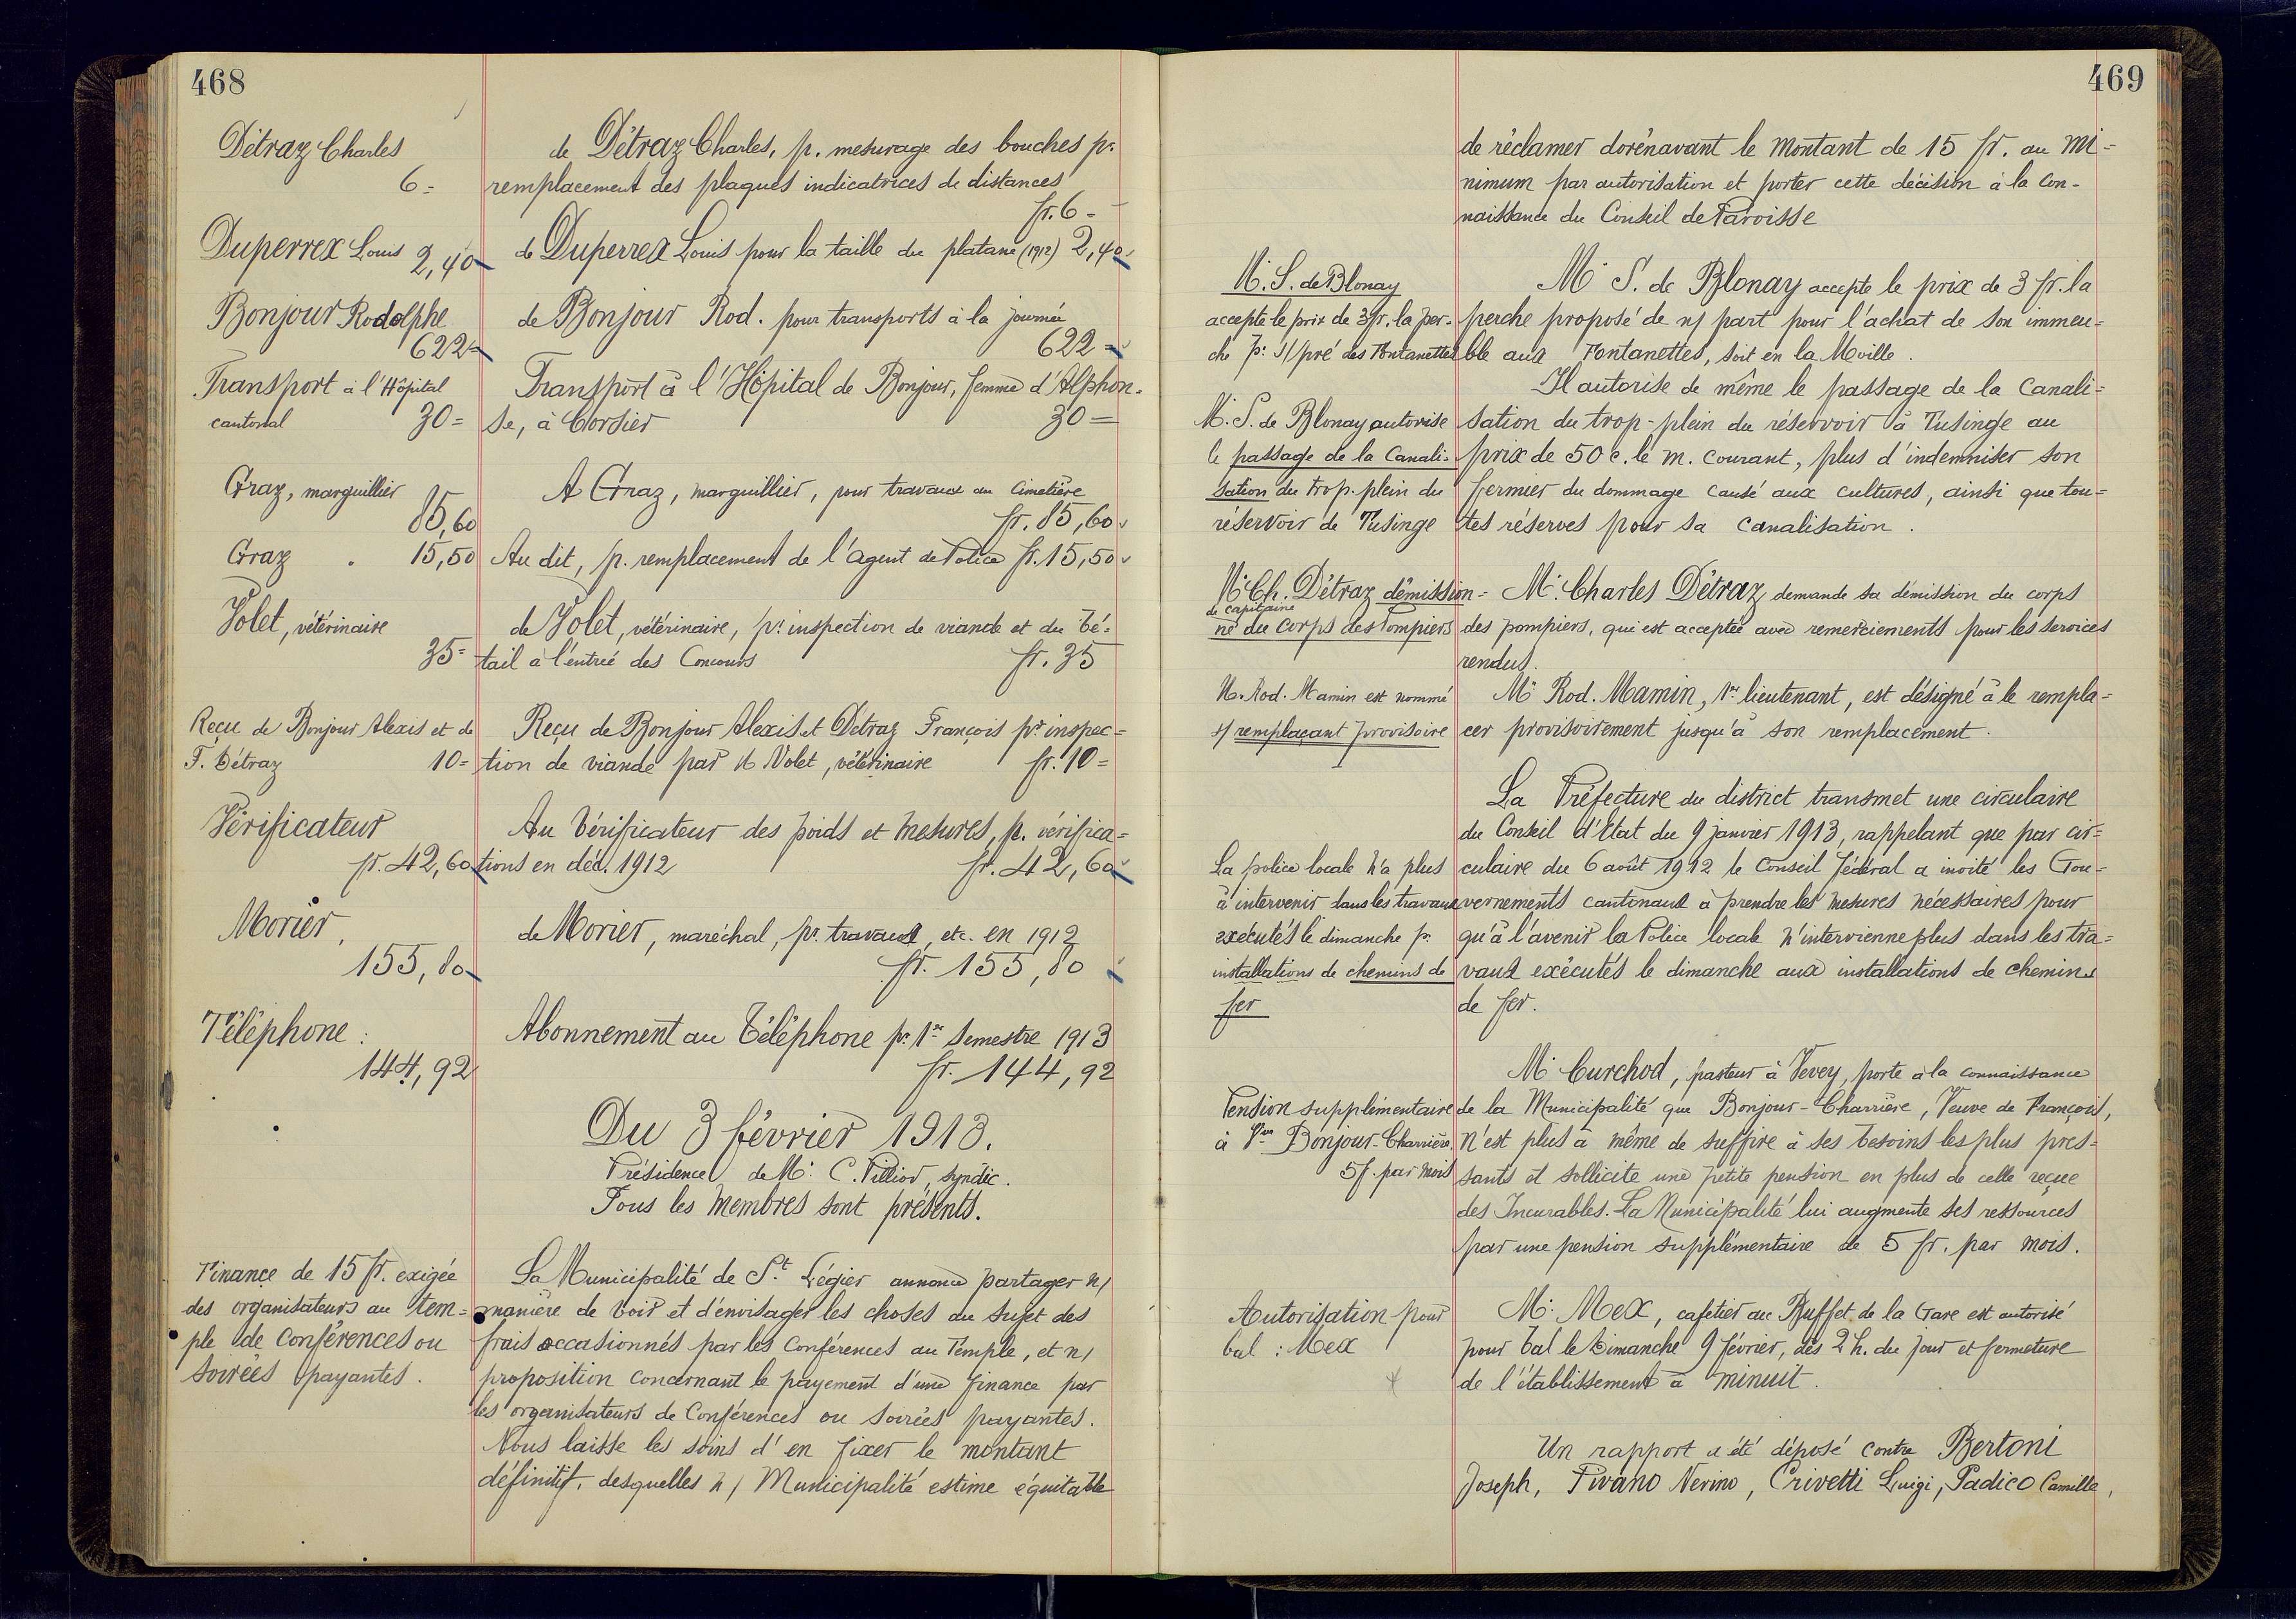 468
Détraz Charles
6=
de Détraz Charles, p. mesurage des bouches pr.
remplacement des plaques indicatrices de distances
fr. 6-
Duperrex Louis 2,40
de Duperrex Louis pour la taille du platane (1912) 2,40
Bonjour Rodolphe
622=
de Bonjour Rod. pour transports à la journée
622=
Transport à l'Hôpital
cantonal 30=
Transport à l'Hôpital de Bonjour, femme d'Alphon-
se, à Corsier 30=
Graz, marguillier
85,60
A Graz, marguillier, pour travaux au Cimetière
fr. 85,60
Graz 15,50
Au dit, p. remplacement de l'agent de Police fr. 15,50
Volet, vétérinaire
35=
de Volet, vétérinaire, pr. inspection de viande et du bé=
tail à l'entrée des Concours fr. 35
Reçu de Bonjour Alexis et de
F. Détraz 10=
Reçu de Bonjour Alexis et Détraz François pr inspec=
tion de viande par M Volet, vétérinaire fr. 10=
Vérificateur
fr. 42,60
Au Vérificateur des poids et mesures, p. vérifica=
tions en déc. 1912 fr. 42,60
Morier,
155,80
de Morier, maréchal, pr. travaux, etc. en 1912
fr. 155,80
Téléphone :
144,92
Abonnement au Téléphone pr. 1er Semestre 1913
fr. 144,92
Du 3 février 1913.
Présidence de Mr. C. Pilliod, syndic.
Tous les membres sont présents.
Finance de 15 fr. exigée
des organisateurs au tem=
ple de Conférences ou
soirées payantes.
La Municipalité de St. Légier annonce partager n/
manière de voir et d'envisager les choses au sujet des
frais occasionnés par les Conférences au Temple, et n/
proposition concernant le payement d'une finance par
les organisateurs de Conférences ou soirées payantes.
Nous laisse les soins d'en fixer le montant
définitif, desquelles n/ Municipalité estime équitable
469
de réclamer dorénavant le montant de 15 fr. au mi=
nimum par autorisation et porter cette décision à la con-
naissance du Conseil de Paroisse
M. S. de Blonay
accepte le prix de 3 fr. la per-
che pr. s/ pré des Fontanettes
Mr S. de Blonay accepte le prix de 3 fr. la
perche proposé de n/ part pour l'achat de son immeu=
ble aux Fontanettes, soit en la Meville.
Il autorise de même le passage de la Canali=
M. S. de Blonay autorise
le passage de la Canali-
sation du trop-plein du
réservoir de Tusinge
sation du trop-plein du réservoir à Tusinge au
prix de 50 c. le m. courant, plus d'indemniser son
fermier du dommage causé aux cultures, ainsi que tou=
tes réserves pour sa canalisation.
Mr Ch. Détraz démission-
de capitaine
né du Corps des Pompiers
Mr. Charles Détraz, demande sa démission du corps
des pompiers, qui est acceptée avec remerciements pour les services
rendus.
M. Rod. Mamin est nommé
s/ remplaçant provisoire
Mr Rod. Mamin, 1er lieutenant, est désigné à le rempla=
cer provisoirement jusqu'à son remplacement.
La Préfecture du district transmet une circulaire
du Conseil d'Etat du 9 janvier 1913, rappelant que par cir=
La police locale n'a plus
à intervenir dans les travaux
exécutés le dimanche pr.
installations de chemins de
fer
culaire du 6 août 1912 le Conseil fédéral a invité les Gou=
vernements cantonaux à prendre les mesures nécessaires pour
qu'à l'avenir la Police locale n'intervienne plus dans les tra=
vaux exécutés le dimanche aux installations de chemins
de fer.
Mr Curchod, pasteur à Vevey, porte à la connaissance
Pension supplémentaire
à Vve Bonjour-Charrière
5 f. par mois
de la Municipalité que Bonjour-Charrière, Veuve de François,
n'est plus à même de suffire à ses besoins les plus pres=
sants et sollicite une petite pension en plus de celle reçue
des Incurables. La Municipalité lui augmente ses ressources
par une pension supplémentaire de 5 fr. par mois.
Autorisation pour
bal : Mex
Mr. Mex, cafetier au Buffet de la Gare est autorisé
pour bal le Dimanche 9 février, dès 2 h. du jour et fermeture
de l'établissement à minuit.
Un rapport a été déposé contre Bertoni
Joseph, Pivano Nerino, Crivetti Luigi, Padico Camille,